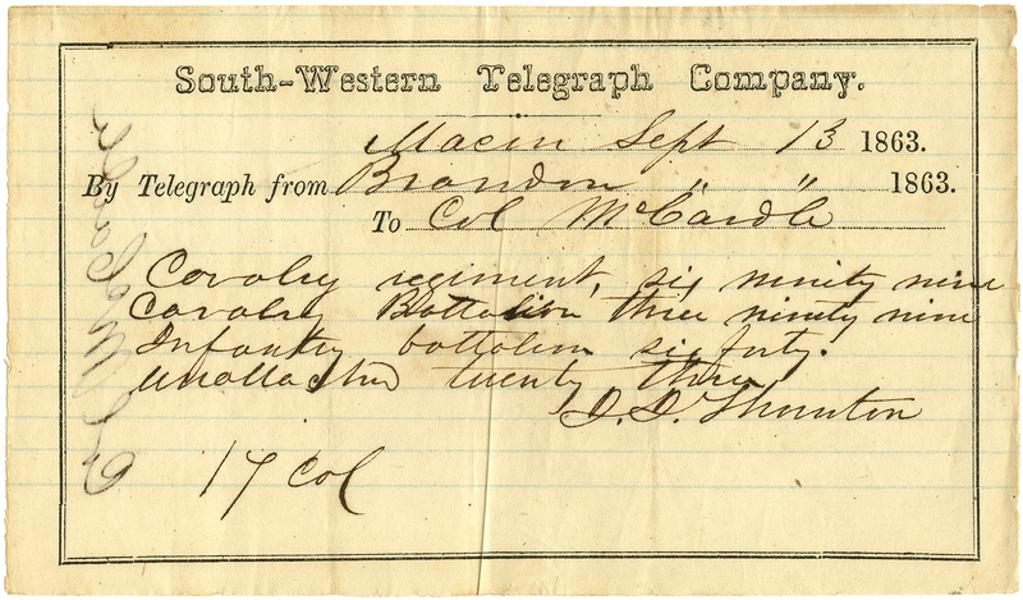 South-Western Telegraph Company.
Macon Sept 13 1863.
By Telegraph from Brandon " " 1863.
To Col McCardle
Cavalry regiment, six ninety nine
Cavalry Battalion three ninety nine
Infantry battalion six forty.
unattached twenty three
Thornton
17 Col
Col McCardle